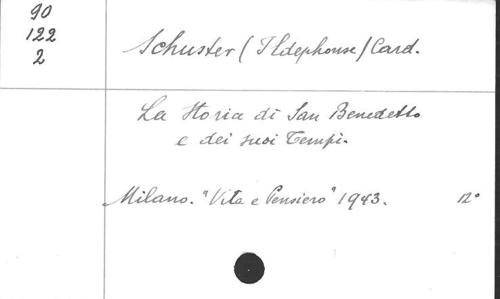 90
122
2
Schuster (Ildephonse) Card.
La Storia di San Benedetto
e dei suoi Tempi.
Milano. "Vita e Pensiero" 1943. 12°